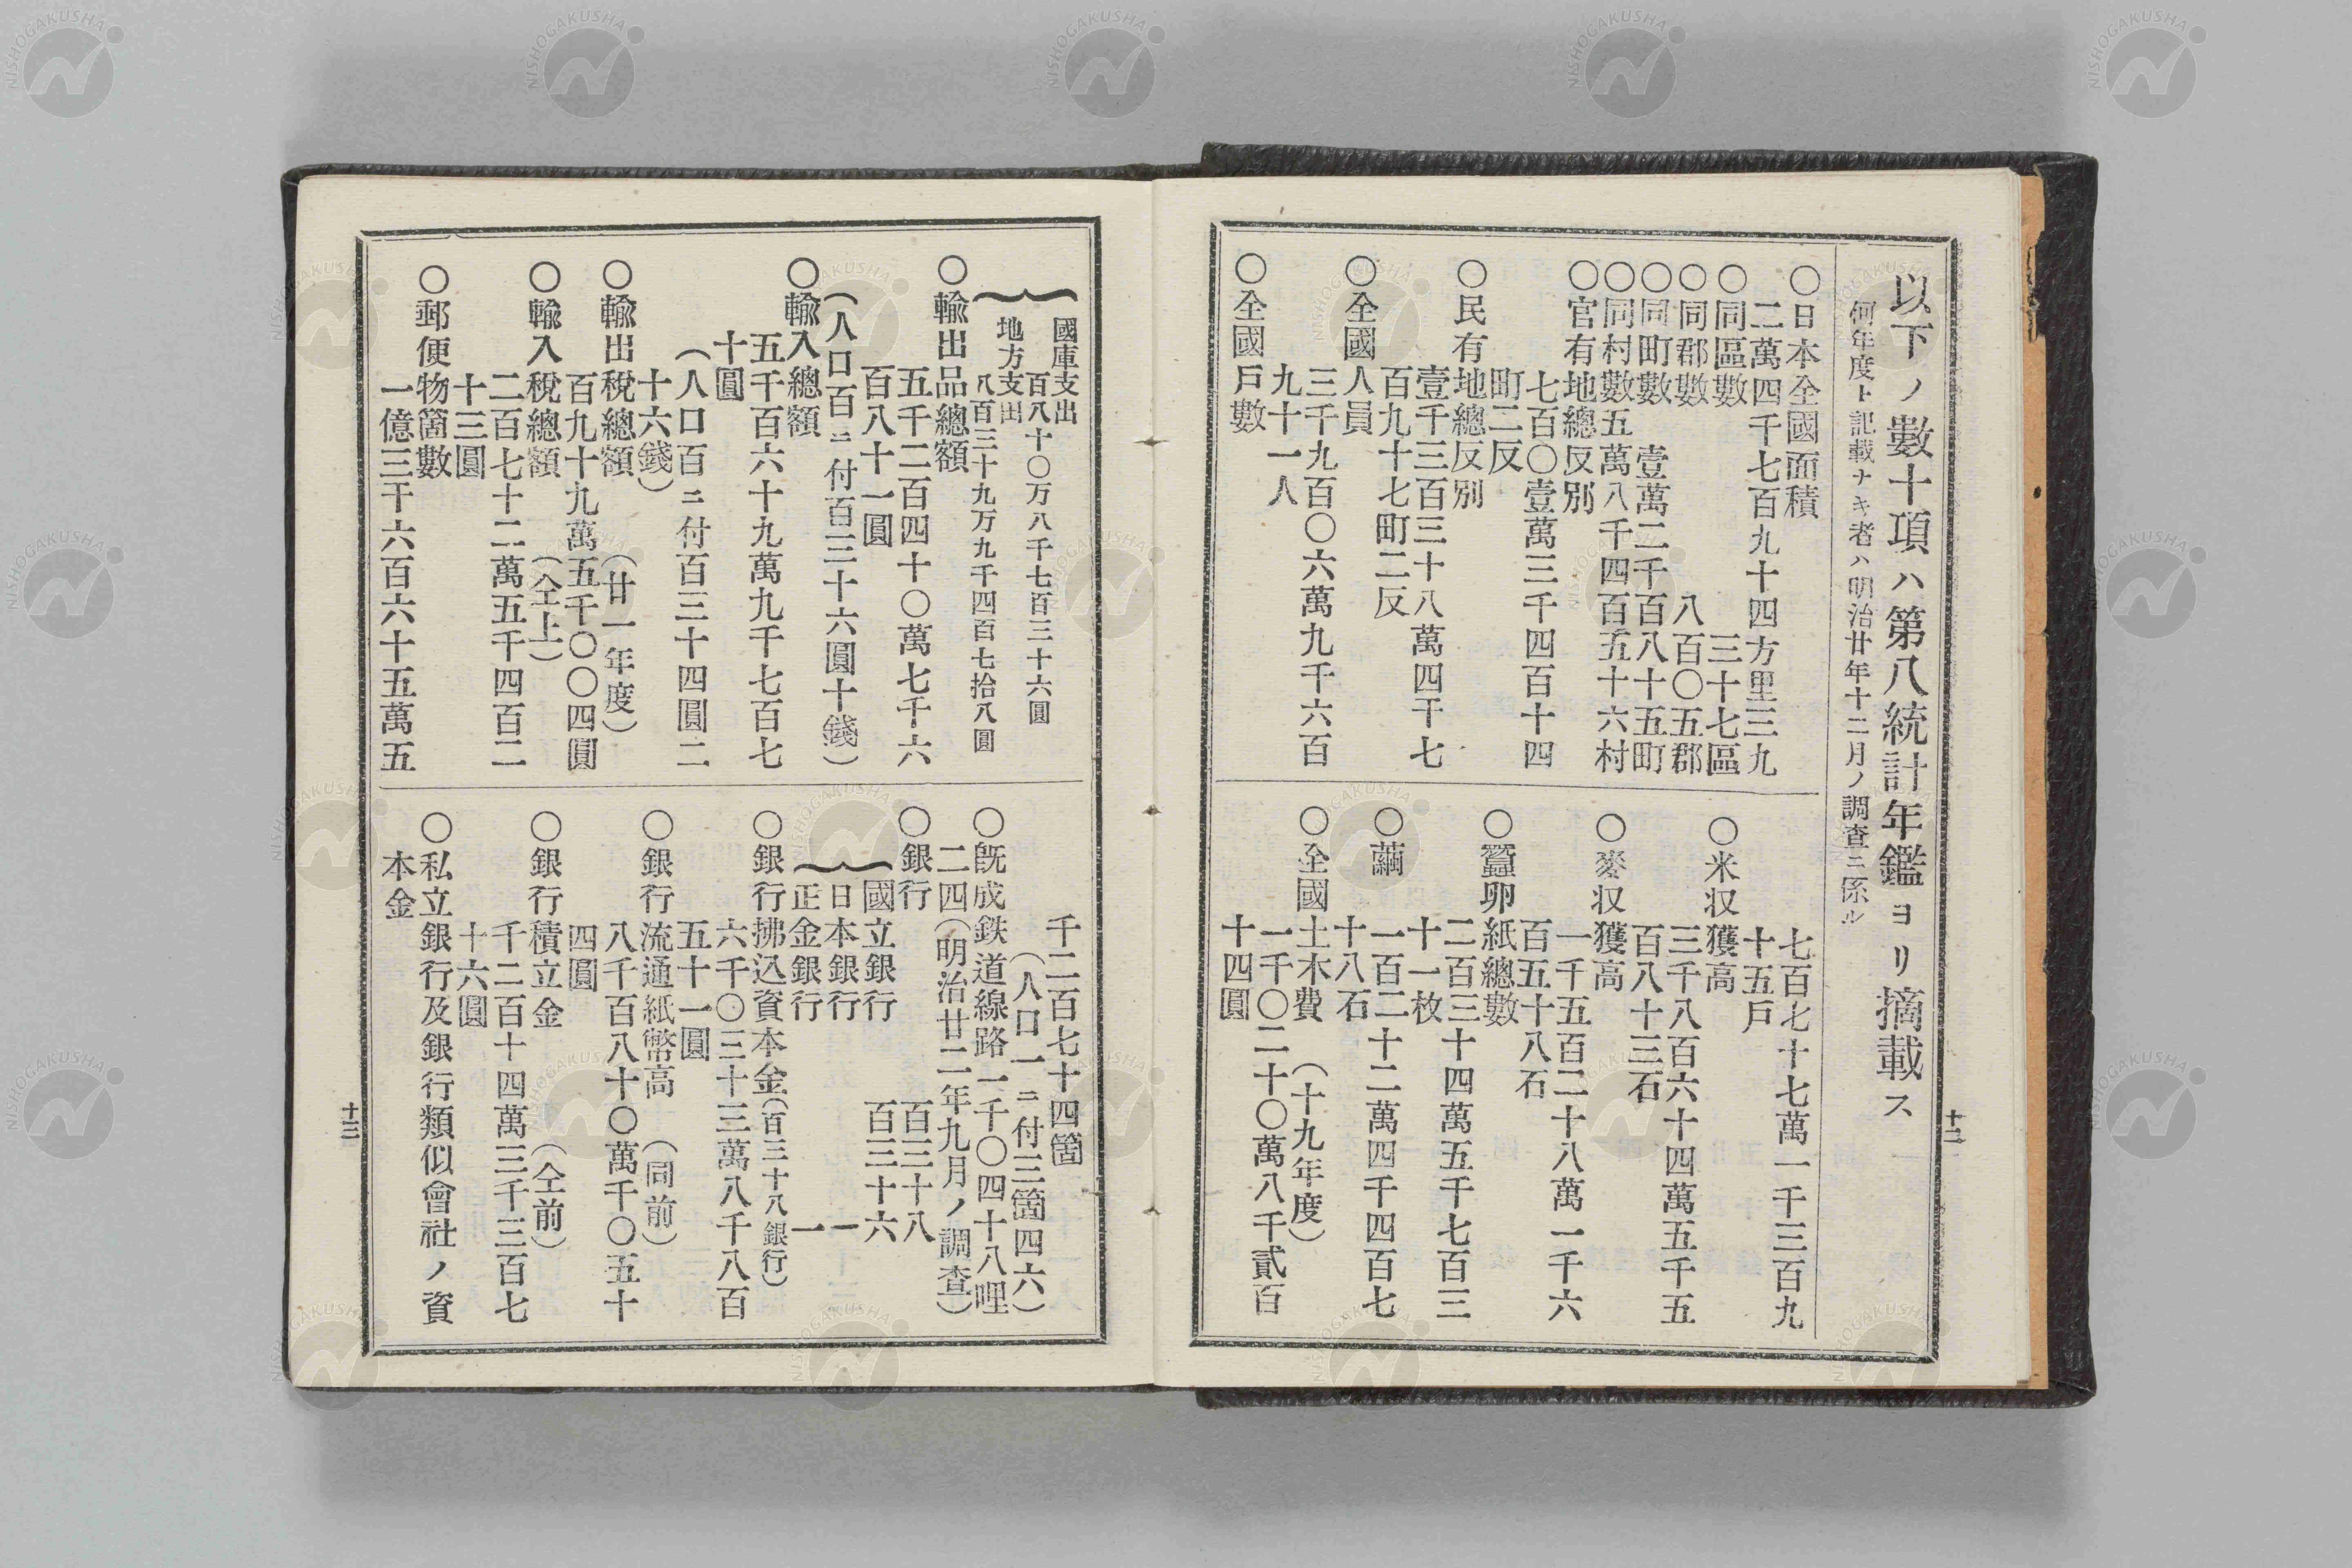 以下ノ數十項ハ第八統計年鑑ヨリ摘載ス
何年度ト記載ナキ者ハ明治廿年十二月ノ調査ニ係ル
〇日本全國面積
二萬四千七百九十四方里三九
〇同區數　三十七區
〇同郡數　八百〇五郡
〇同町數　壹萬二千百八十五町
〇同村數五萬八千四百五十六村
〇官有地總反別
七百〇壹萬三千四百十四
町二反
〇民有地總反別
壹千三百三十八萬四千七
百九十七町二反
〇全國人員
三千九百〇六萬九千六百
九十一人
〇全國戶數
七百七十七萬一千三百九
十五戶
〇米収獲高
三千八百六十四萬五千五
百八十三石
〇麥収獲高
一千五百二十八萬一千六
百五十八石
〇蠶卵紙總數
二百三十四萬五千七百三
十一枚
〇繭
一百二十二萬四千四百七
十八石
〇全國土木費　（十九年度）
一千〇二十〇萬八千貳百
十四圓
十二
國庫支出
百八十〇万八千七百三十六圓
地方支出
八百三十九万九千四百七拾八圓
〇輸出品總額
五千二百四十〇萬七千六
百八十一圓
（人口百ニ付百三十六圓十錢）
〇輸入總額
五千百六十九萬九千七百七
十圓
（人口百ニ付百三十四圓二
十六錢）
〇輸出稅總額　（廿一年度）
百九十九萬五千〇〇四圓
〇輸入稅總額　（仝上）
二百七十二萬五千四百二
十三圓
〇郵便物箇數
一億三千六百六十五萬五
千二百七十四箇
（人口一ニ付三箇四六）
〇旣成鉄道線路一千〇四十八哩
二四（明治廿二年九月ノ調査）
〇銀行　百三十八
國立銀行　百三十六
日本銀行　一
正金銀行　一
〇銀行拂込資本金（百三十八銀行）
六千〇三十三萬八千八百
五十一圓
〇銀行流通紙幣高　（同前）
八千百八十〇萬千〇五十
四圓
〇銀行積立金　（仝前）
千二百十四萬三千三百七
十六圓
〇私立銀行及銀行類似會社ノ資
本金
十三
NISHOGAKUSHA